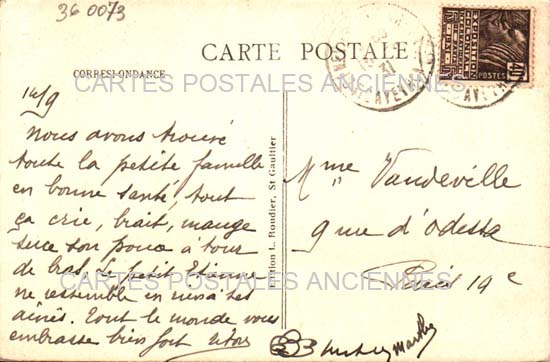 36 0073
CARTE POSTALE
CORRESPONDANCE
CARTES POSTALES ANCIENNES
14/9
Nous avons trouvé
toute la petite famille
en bonne santé, tout
ça crie, brait, mange
suce son pouce à tour
de bras, Le petit Etienne
ne ressemble en rien à ses
aînés. Tout le monde vous
embrasse bien fort
Edition L. Roudier, St Gaultier
Mme Vandeville
9 rue d'Odessa
Paris 19e
CARTES POSTALES ANCIENNES
POSTES
40c